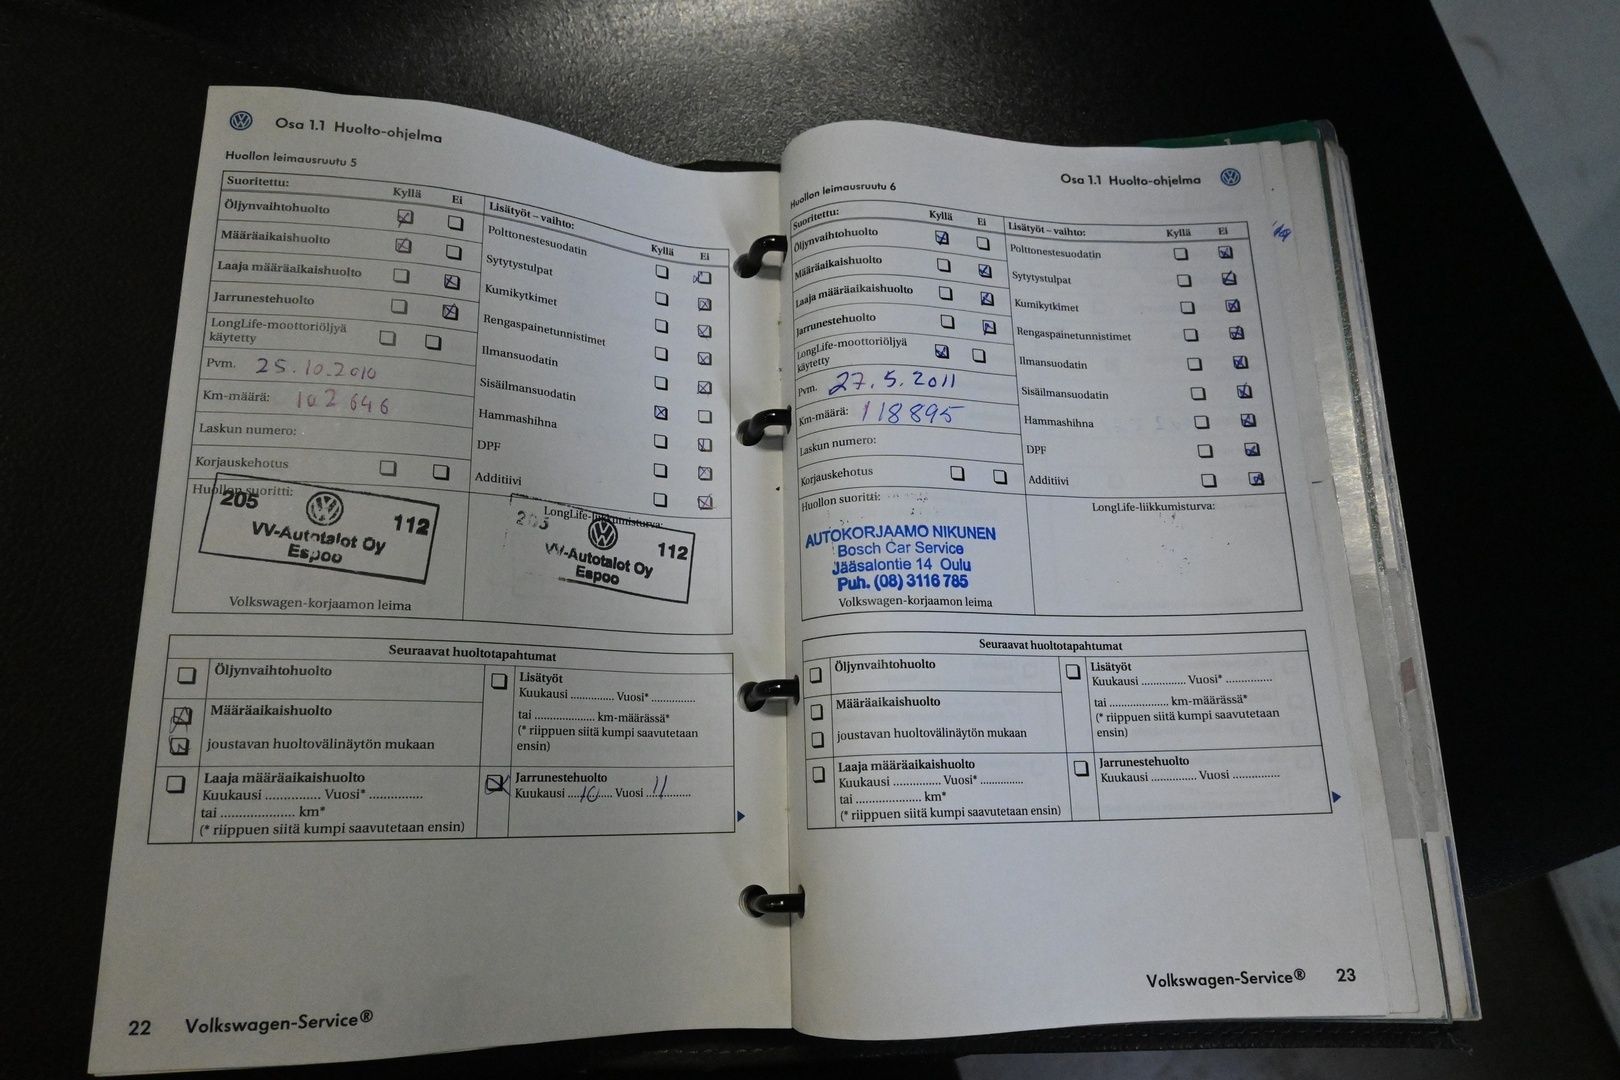 Osa 1.1 Huolto-ohjelma
Huollon leimausruutu 5
Suoritettu:
Kyllä Ei
Öljynvaihtohuolto
Määräaikaishuolto
Laaja määräaikaishuolto
Jarrunestehuolto
LongLife-moottoriöljyä
käytetty
Pvm. 25.10.2010
Km-määrä: 102 646
Laskun numero:
Korjauskehotus
Huollon suoritti:
205
112
VV-Autotalot Oy
Espoo
Volkswagen-korjaamon leima
Lisätyöt – vaihto:
Kyllä Ei
Polttonestesuodatin
Sytytystulpat
Kumikytkimet
Rengaspainetunnistimet
Ilmansuodatin
Sisäilmansuodatin
Hammashihna
DPF
Additiivi
LongLife-liikkumisturva:
205
112
VV-Autotalot Oy
Espoo
Seuraavat huoltotapahtumat
Öljynvaihtohuolto
Määräaikaishuolto
joustavan huoltovälinäytön mukaan
Laaja määräaikaishuolto
Kuukausi .............. Vuosi* ..............
tai .................... km*
(* riippuen siitä kumpi saavutetaan ensin)
Lisätyöt
Kuukausi .............. Vuosi* ..............
tai .................... km-määrässä*
(* riippuen siitä kumpi saavutetaan
ensin)
Jarrunestehuolto
Kuukausi ....10.... Vuosi ..11..........
22 Volkswagen-Service®
Osa 1.1 Huolto-ohjelma
Huollon leimausruutu 6
Suoritettu:
Kyllä Ei
Öljynvaihtohuolto
Määräaikaishuolto
Laaja määräaikaishuolto
Jarrunestehuolto
LongLife-moottoriöljyä
käytetty
Pvm. 27.5.2011
Km-määrä: 118895
Laskun numero:
Korjauskehotus
Huollon suoritti:
AUTOKORJAAMO NIKUNEN
Bosch Car Service
Jääsalontie 14 Oulu
Puh. (08) 3116 785
Volkswagen-korjaamon leima
Lisätyöt – vaihto:
Kyllä Ei
Polttonestesuodatin
Sytytystulpat
Kumikytkimet
Rengaspainetunnistimet
Ilmansuodatin
Sisäilmansuodatin
Hammashihna
DPF
Additiivi
LongLife-liikkumisturva:
Seuraavat huoltotapahtumat
Öljynvaihtohuolto
Määräaikaishuolto
joustavan huoltovälinäytön mukaan
Laaja määräaikaishuolto
Kuukausi .............. Vuosi* ..............
tai .................... km*
(* riippuen siitä kumpi saavutetaan ensin)
Lisätyöt
Kuukausi .............. Vuosi* ..............
tai .................... km-määrässä*
(* riippuen siitä kumpi saavutetaan
ensin)
Jarrunestehuolto
Kuukausi .............. Vuosi ..............
Volkswagen-Service® 23